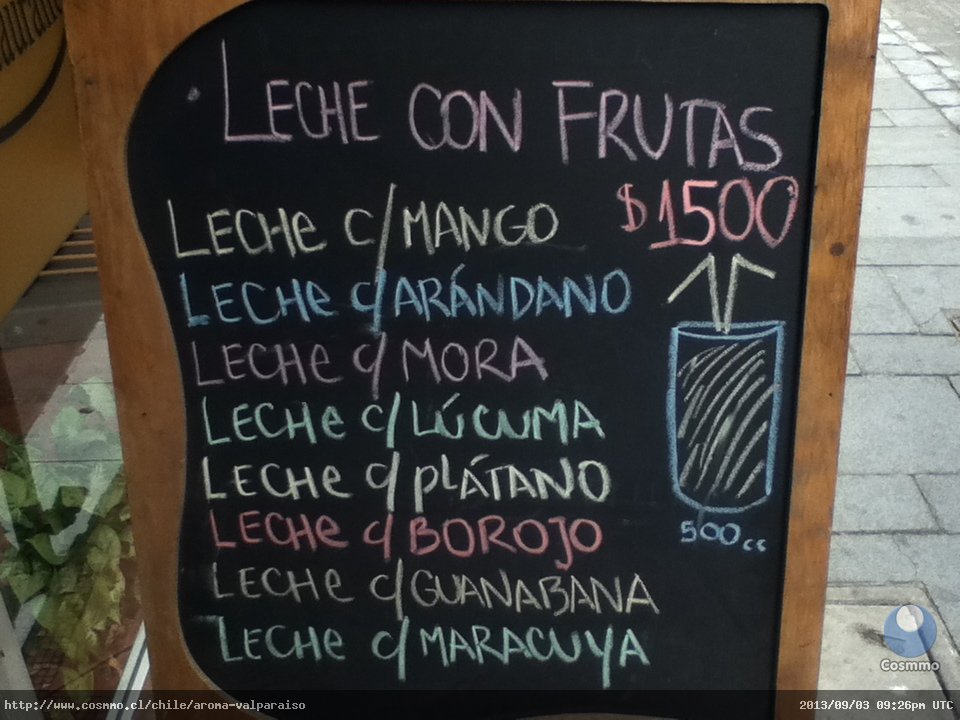 LECHE CON FRUTAS
$1500
LECHE c/MANGO
LECHE c/ARÁNDANO
LECHE c/MORA
LECHE c/LÚCUMA
LECHE c/PLÁTANO
LECHE c/BOROJO
LECHE c/GUANABANA
LECHE c/MARACUYA
500cc
Cosmmo
http://www.cosmmo.cl/chile/aroma-valparaiso
2013/09/03 09:26pm UTC